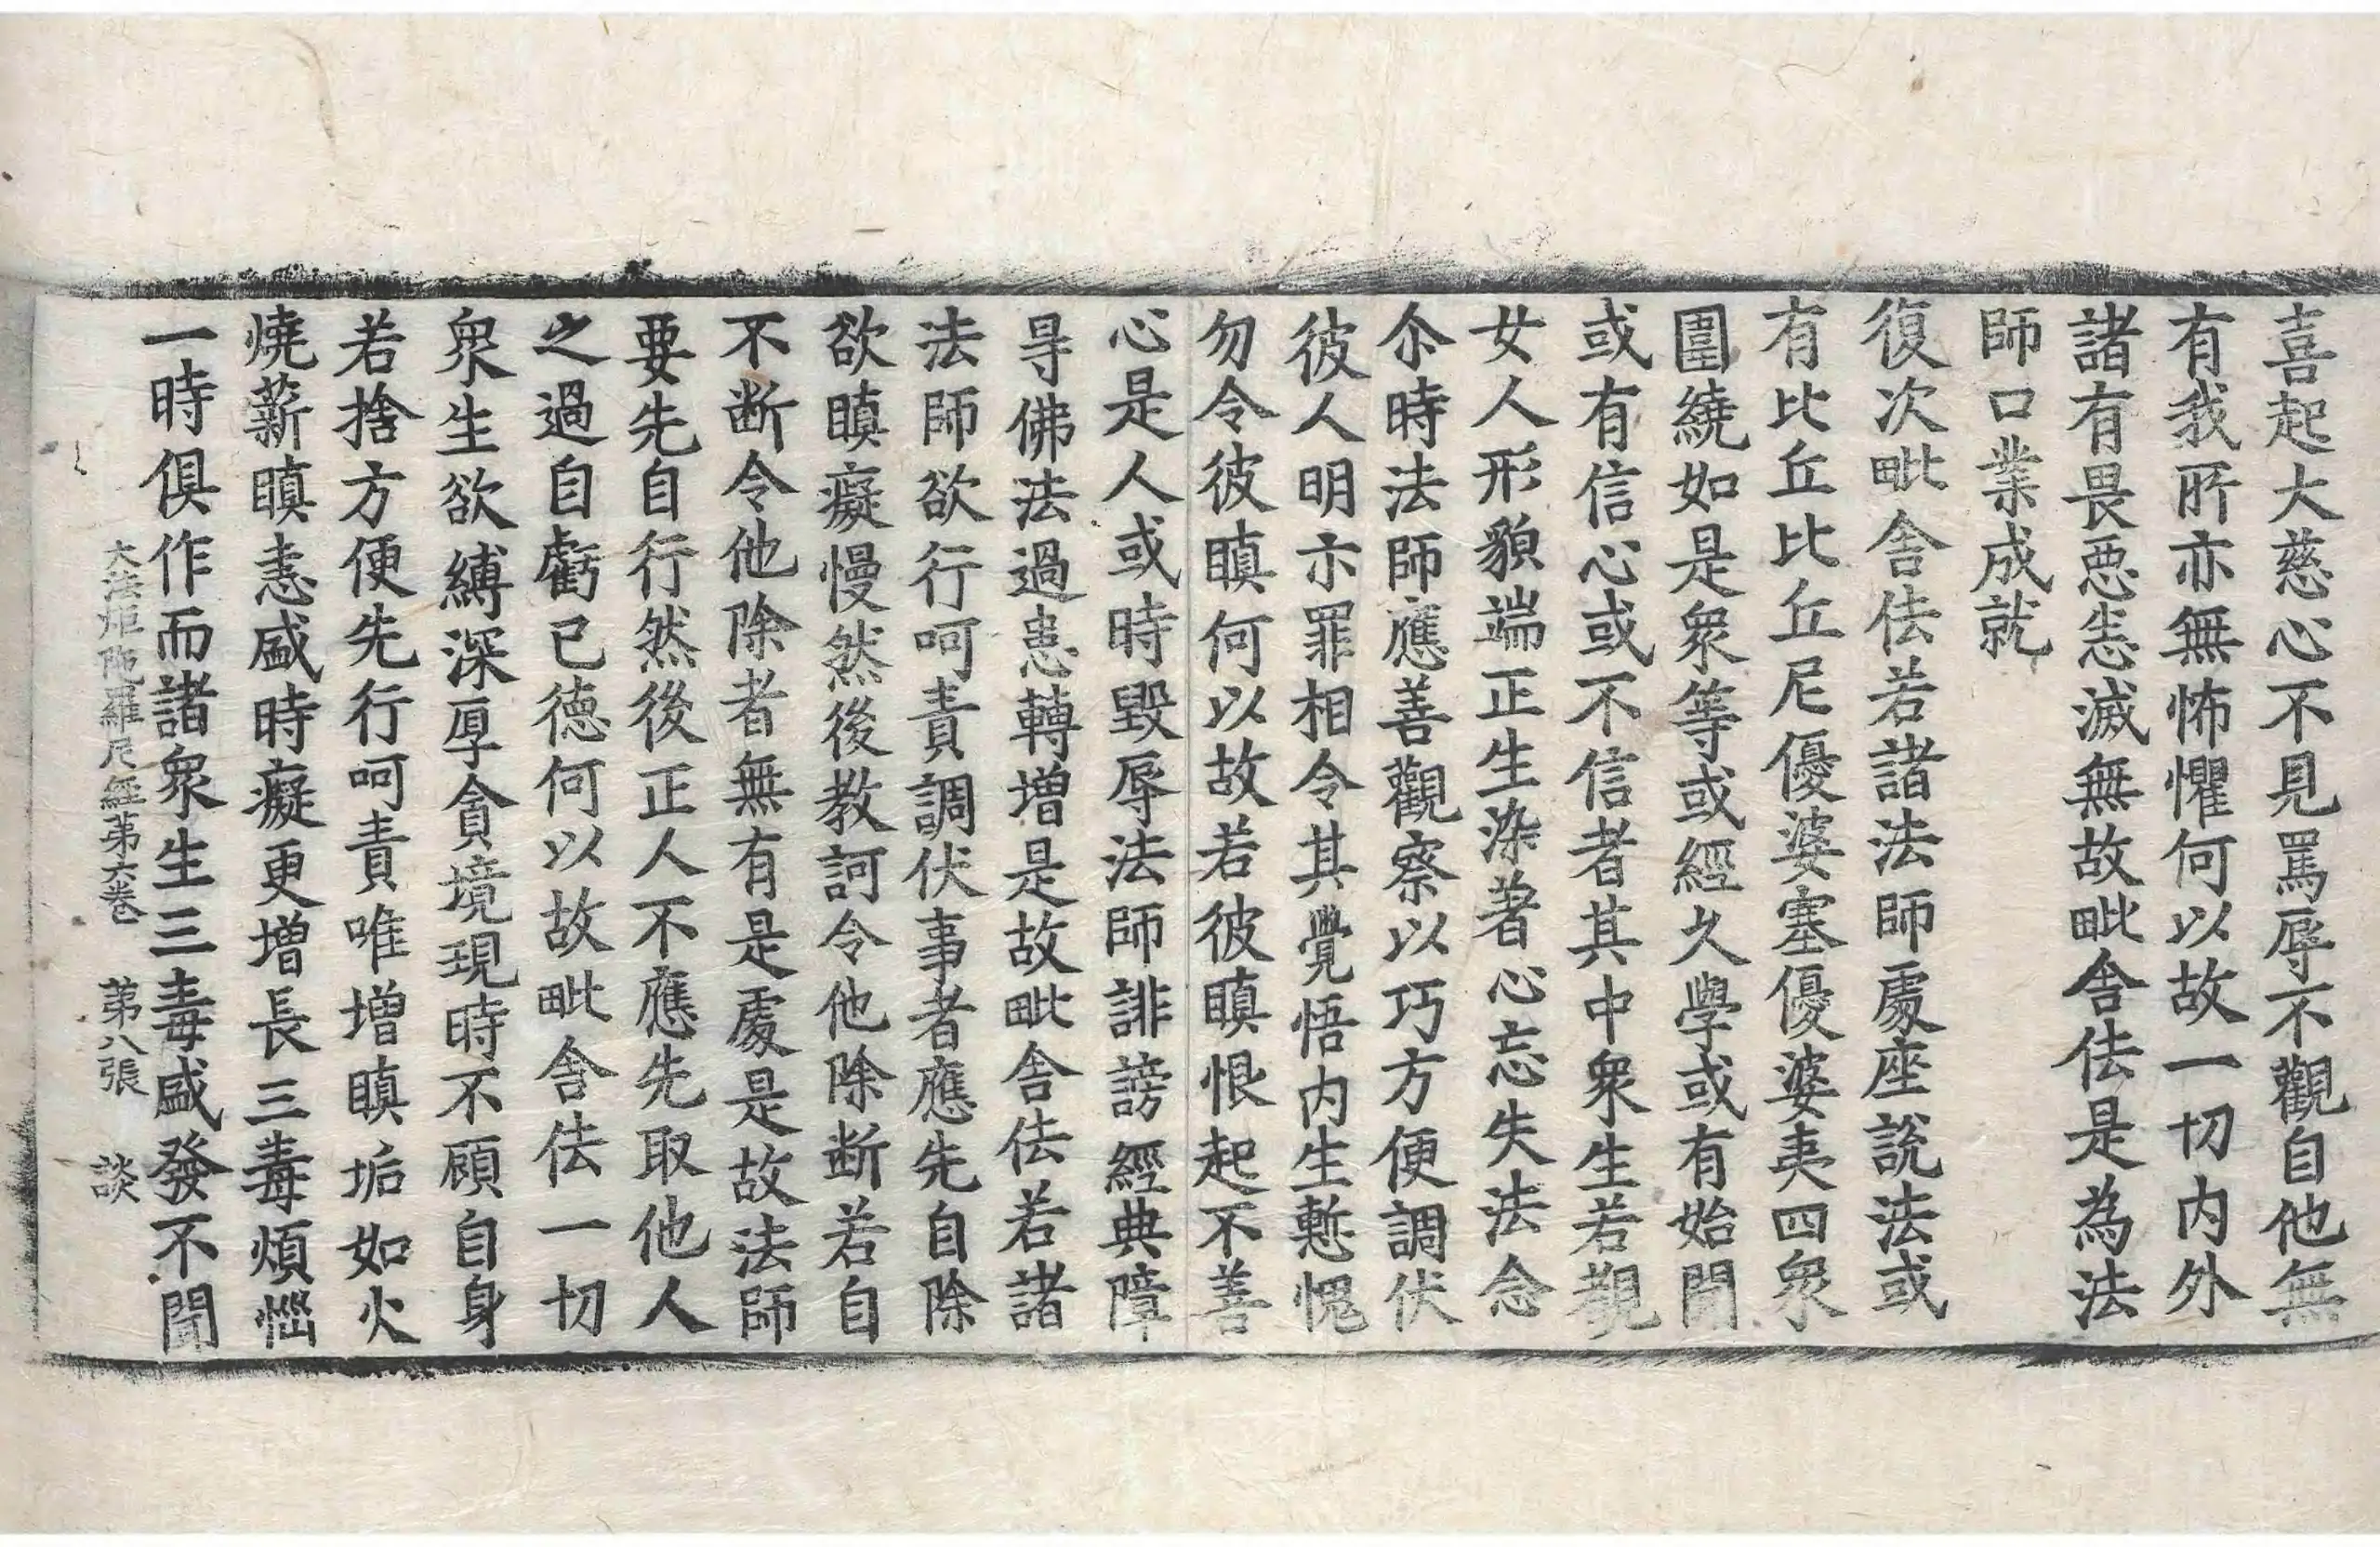 喜起大慈心不見罵辱不觀自他無
有我所亦無怖懼何以故一切内外
諸有畏惡恚滅無故毗舍佉是為法
師口業成就
復次毗舍佉若諸法師處座説法或
有比丘比丘尼優婆塞優婆夷四衆
圍繞如是衆等或經久學或有始聞
或有信心或不信者其中衆生若覩
女人形貌端正生染著心忘失法念
尒時法師應善觀察以巧方便調伏
彼人明示罪相令其覺悟内生慙愧
勿令彼瞋何以故若彼瞋恨起不善
心是人或時毀辱法師誹謗經典障
㝵佛法過患轉增是故毗舍佉若諸
法師欲行呵責調伏事者應先自除
欲瞋癡慢然後教訶令他除断若自
不断令他除者無有是處是故法師
要先自行然後正人不應先取他人
之過自虧己德何以故毗舍佉一切
衆生欲縛深厚貪境現時不顧自身
若捨方便先行呵責唯增瞋垢如火
燒薪瞋恚盛時癡更增長三毒煩惱
一時俱作而諸衆生三毒盛發不聞
大法炬陁羅尼經苐六卷　苐八張　談